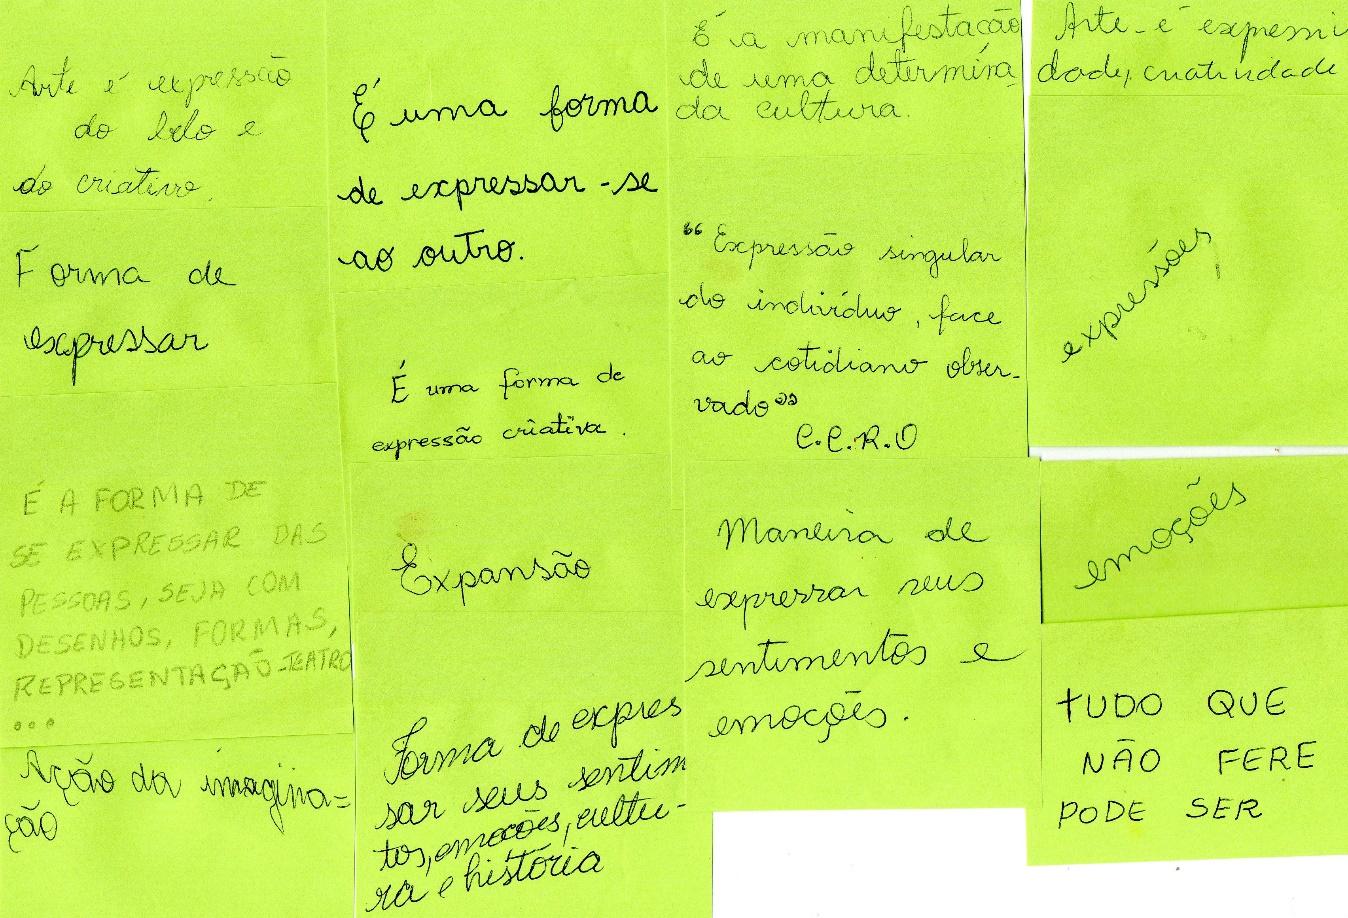 Arte é expressão
do belo e
do criativo.
Forma de
expressar
É A FORMA DE
SE EXPRESSAR DAS
PESSOAS, SEJA COM
DESENHOS, FORMAS,
REPRESENTAÇÃO-TEATRO
...
Ação da imagina=
ção
É uma forma
de expressar-se
ao outro.
É uma forma de
expressão criativa.
Expansão
Forma de expres
sar seus sentimen
tos, emoções, cultu-
ra e história
É a manifestação
de uma determina
da cultura.
"Expressão singular
do indivíduo, face
ao cotidiano obser-
vado"
C.C.R.O
Maneira de
expressar seus
sentimentos e
emoções.
Arte é expressi
dade, criatividade
expressões
emoções
TUDO QUE
NÃO FERE
PODE SER